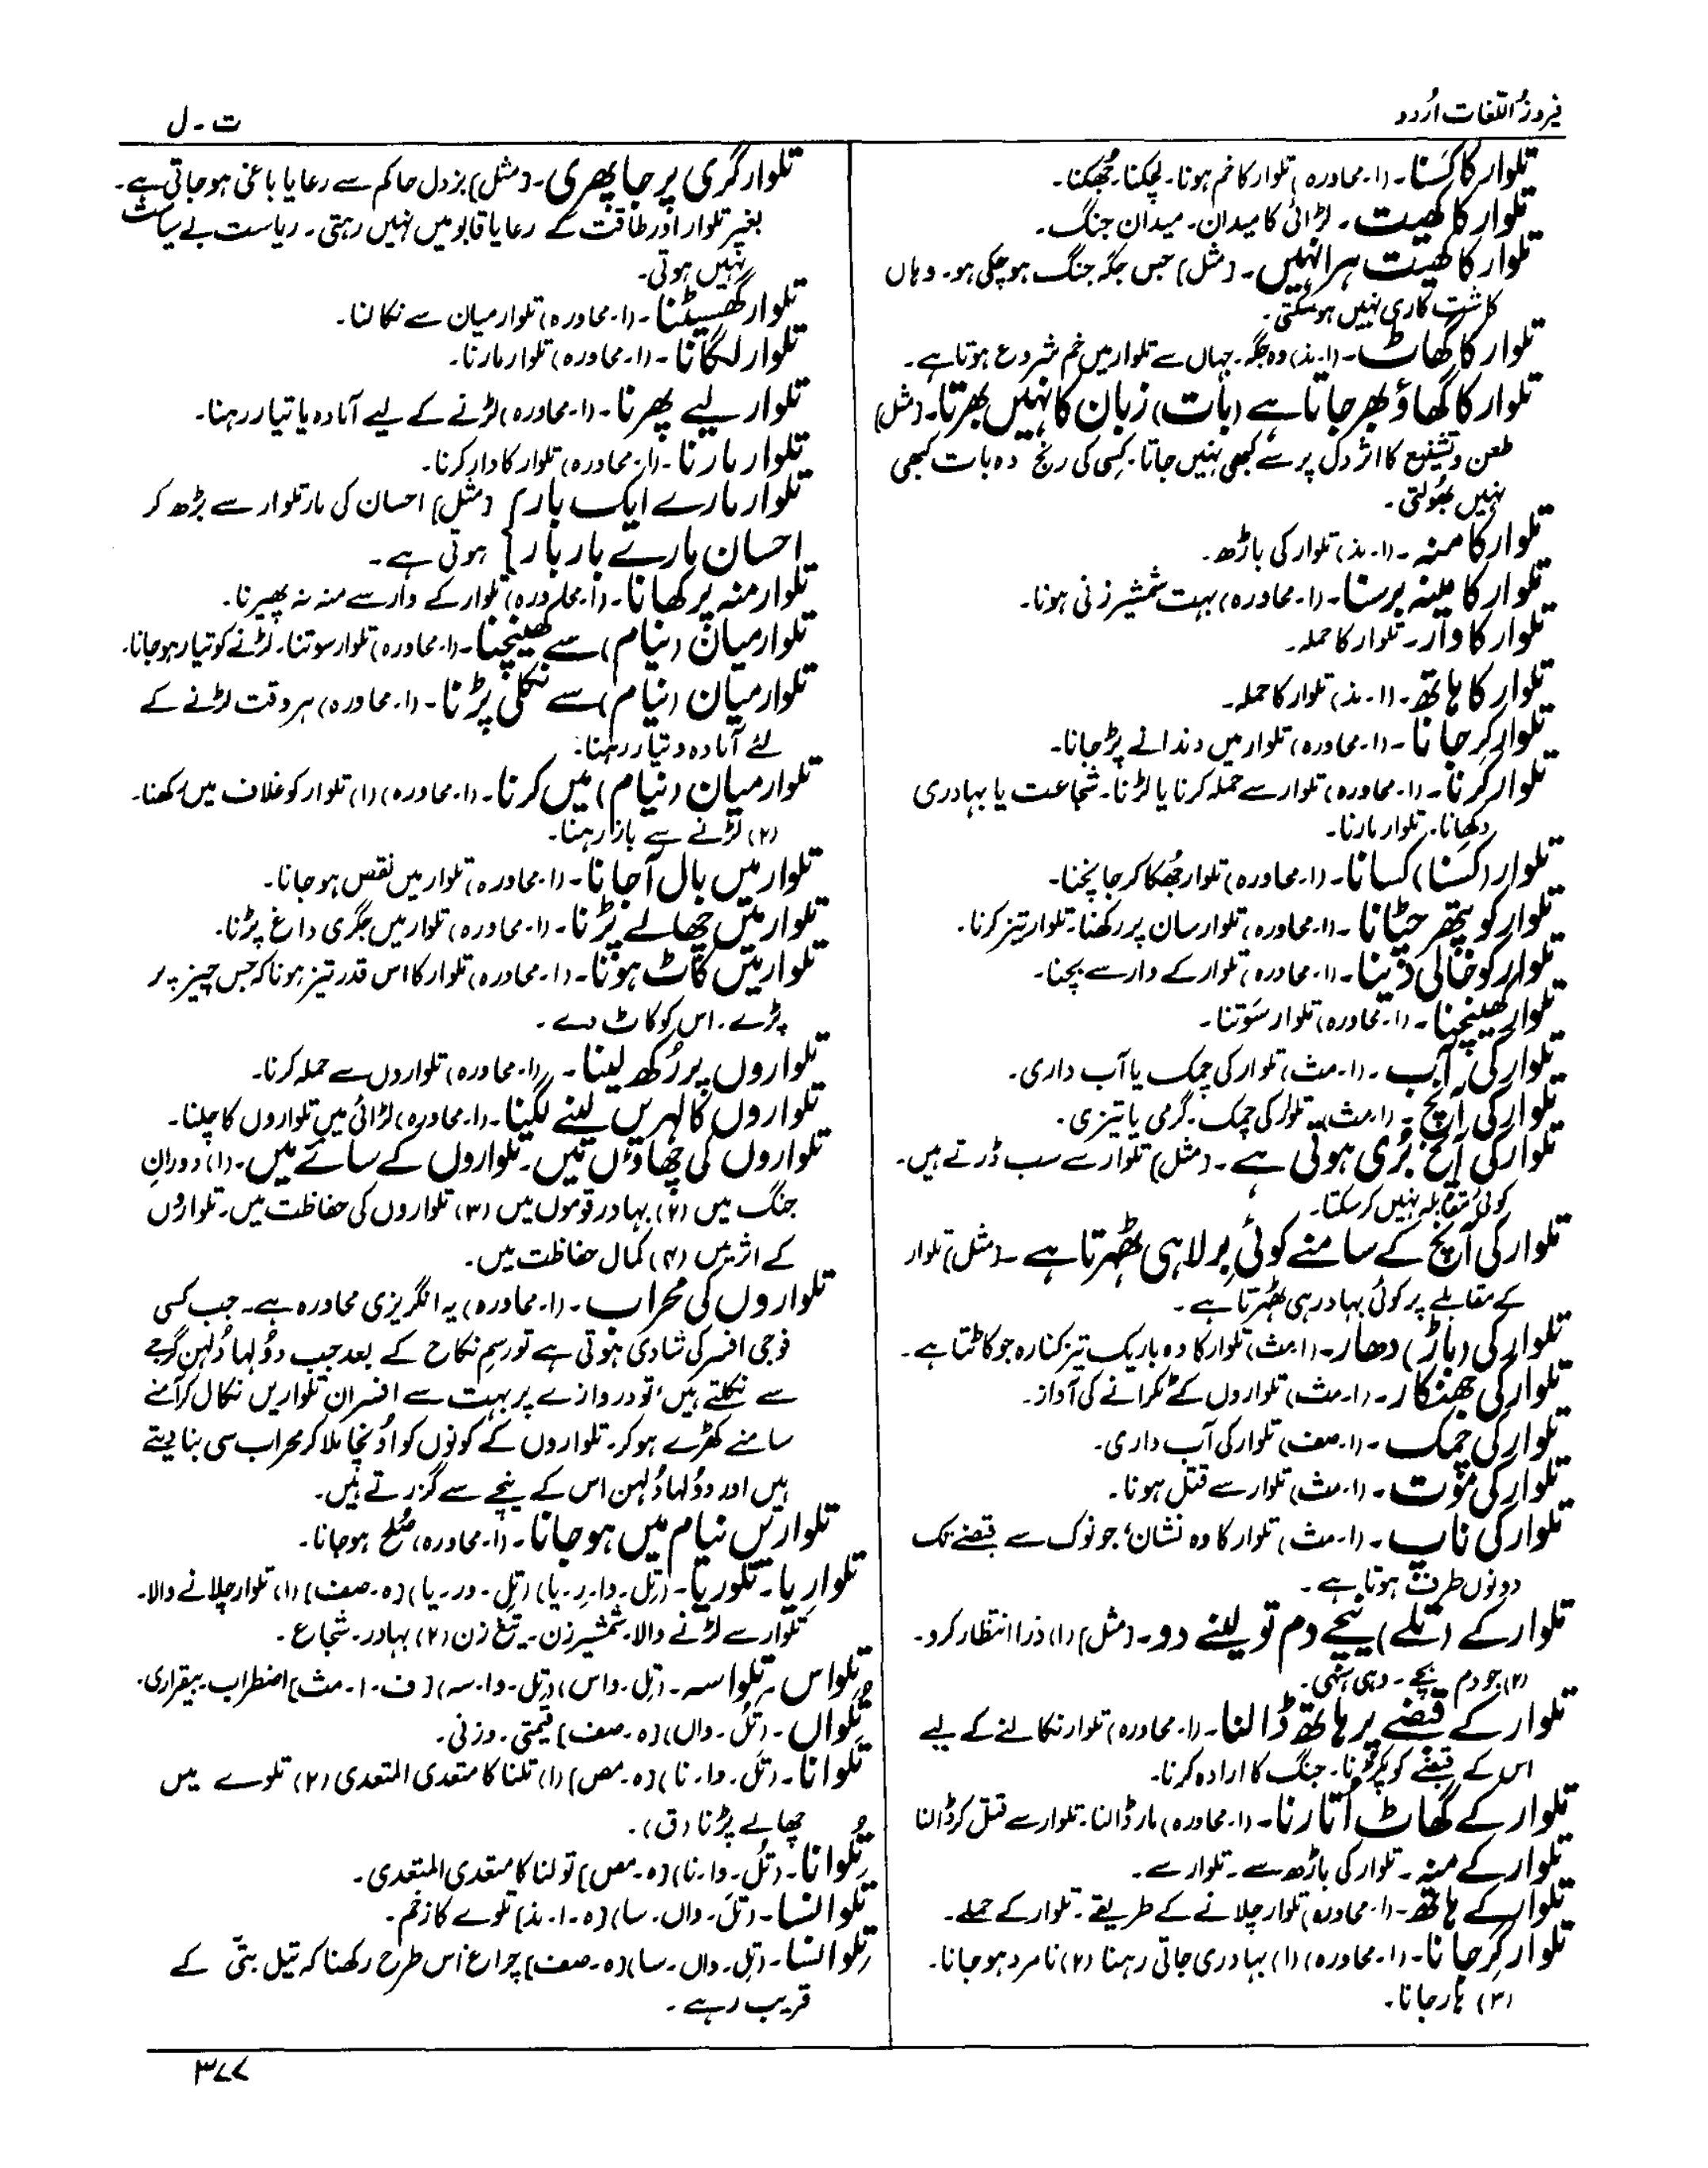 فیروزُ اللّغات اُردو
ت - ل
تلوار کا کَسْنا۔ (ا۔ محاورہ) تلوار کا خم ہونا۔ لچکنا۔ جُھکنا۔
تلوار کا کھیت۔ لڑائی کا میدان۔ میدان جنگ۔
تلوار کا کھیت ہرا نہیں۔ (مثل) جس جگہ جنگ ہوچکی ہو۔ وہاں
کاشت کاری نہیں ہوسکتی۔
تلوار کا گھاٹ۔ (ا۔ مذ) وہ جگہ۔ جہاں سے تلوار میں خم شروع ہوتا ہے۔
تلوار کا گھاؤ بھر جاتا ہے (بات) زبان کا نہیں بھرتا۔ (مثل)
طعن و تشنیع کا اثر دل پر سے کبھی نہیں جاتا۔ کِسی کی رنج دہ بات کبھی
نہیں بُھولتی۔
تلوار کا منہ۔ (ا۔ مذ) تلوار کی باڑھ۔
تلوار کا مینہ برسنا۔ (ا۔ محاورہ) بہت شمشیر زنی ہونا۔
تلوار کا وار۔ تلوار کا حملہ۔
تلوار کا ہاتھ۔ (ا۔ مذ) تلوار کا حملہ۔
تلوار کرجانا۔ (ا۔ محاورہ) تلوار میں دندانے پڑجانا۔
تلوار کرنا۔ (ا۔ محاورہ) تلوار سے حملہ کرنا یا لڑنا۔ شجاعت یا بہادری
دکھانا۔ تلوار مارنا۔
تلوار (کسنا) کسانا۔ (ا۔ محاورہ) تلوار جُھکا کر جانچنا۔
تلوار کو پتھر چٹانا۔ (ا۔ محاورہ) تلوار سان پر رکھنا۔ تلوار تیز کرنا۔
تلوار کو خالی دینا۔ (ا۔ محاورہ) تلوار کے وار سے بچنا۔
تلوار کھینچنا۔ (ا۔ محاورہ) تلوار سَوتنا۔
تلوار کی آب۔ (ا۔ مث) تلوار کی چمک یا آب داری۔
تلوار کی آنچ۔ (ا۔ مث) تلوار کی چمک۔ گرمی یا تیزی۔
تلوار کی آنچ بُری ہوتی ہے۔ (مثل) تلوار سے سب ڈرتے ہیں۔
کوئی مقابلہ نہیں کرسکتا۔
تلوار کی آنچ کے سامنے کوئی بِرلا ہی ٹھہرتا ہے۔ (مثل) تلوار
کے مقابلے پر کوئی بہادر ہی ٹھہرتا ہے۔
تلوار کی (باڑ) دھار۔ (ا۔ مث) تلوار کا وہ باریک تیز کنارہ جو کاٹتا ہے۔
تلوار کی جھنکار۔ (ا۔ مث) تلواروں کے ٹکرانے کی آواز۔
تلوار کی چمک۔ (ا۔ صف) تلوار کی آب داری۔
تلوار کی موت۔ (ا۔ مث) تلوار سے قتل ہونا۔
تلوار کی ناپ۔ (ا۔ مث) تلوار کا وہ نشان، جو نوک سے قبضے تک
دونوں طرف ہوتا ہے۔
تلوار کے (تلے) نیچے دم تو لینے دو۔ (مثل) (۱) ذرا انتظار کرو۔
(۲) جو دم بچے۔ وہی سہی۔
تلوار کے قبضے پر ہاتھ ڈالنا۔ (ا۔ محاورہ) تلوار نکالنے کے لیے
اس کے قبضے کو پکڑنا۔ جنگ کا ارادہ کرنا۔
تلوار کے گھاٹ اُتارنا۔ (ا۔ محاورہ) مار ڈالنا۔ تلوار سے قتل کر ڈالنا
تلوار کے منہ۔ تلوار کی باڑھ سے۔ تلوار سے۔
تلوار کے ہاتھ۔ (ا۔ محاورہ) تلوار چلانے کے طریقے۔ تلوار کے حملے۔
تلوار گِر جانا۔ (ا۔ محاورہ) (۱) بہادری جاتی رہنا (۲) نامرد ہوجانا۔
(۳) ہار جانا۔
تلوار گری پرجا پھری۔ (مثل) بزدل حاکم سے رعایا باغی ہوجاتی ہے۔
بغیر تلوار اور طاقت کے رعایا قابو میں نہیں رہتی۔ ریاست بے سیاست
نہیں ہوتی۔
تلوار گھسیٹنا۔ (ا۔ محاورہ) تلوار میان سے نکالنا۔
تلوار لگانا۔ (ا۔ محاورہ) تلوار مارنا۔
تلوار لیے پھرنا۔ (ا۔ محاورہ) لڑنے کے لیے آمادہ یا تیار رہنا۔
تلوار مارنا۔ (ا۔ محاورہ) تلوار کا وار کرنا۔
تلوار مارے ایک بار } (مثل) احسان کی مار تلوار سے بڑھ کر
احسان مارے بار بار } ہوتی ہے۔
تلوار منہ پر کھانا۔ (ا۔ محاورہ) تلوار کے وار سے منہ نہ پھیرنا۔
تلوار میان (نیام) سے کھینچنا۔ (ا۔ محاورہ) تلوار سوتنا۔ لڑنے کو تیار ہوجانا۔
تلوار میان (نیام) سے نکلی پڑنا۔ (ا۔ محاورہ) ہر وقت لڑنے کے
لئے آمادہ و تیار رہنا۔
تلوار میان (نیام) میں کرنا۔ (ا۔ محاورہ) (۱) تلوار کو غلاف میں رکھنا۔
(۲) لڑنے سے باز رہنا۔
تلوار میں بال آجانا۔ (ا۔ محاورہ) تلوار میں نقص ہوجانا۔
تلوار میں چھالے پڑنا۔ (ا۔ محاورہ) تلوار میں جگری داغ پڑنا۔
تلوار میں کاٹ ہونا۔ (ا۔ محاورہ) تلوار کا اس قدر تیز ہونا کہ جس چیز پر
پڑے۔ اس کو کاٹ دے۔
تلواروں پر رکھ لینا۔ (ا۔ محاورہ) تلواروں سے حملہ کرنا۔
تلواروں کا لہریں لینے لگنا۔ (ا۔ محاورہ) لڑائی میں تلواروں کا چلنا۔
تلواروں کی چھاؤں میں۔ تلواروں کے سائے میں۔ (۱) دورانِ
جنگ میں (۲) بہادر قوموں میں (۳) تلواروں کی حفاظت میں۔ تلواروں
کے اثر میں (۴) کمال حفاظت میں۔
تلواروں کی محراب۔ (ا۔ محاورہ) یہ انگریزی محاورہ ہے۔ جب کسی
فوجی افسر کی شادی ہوتی ہے تو رسمِ نکاح کے بعد جب دُولہا دُلہن گرجے
سے نکلتے ہیں، تو دروازے پر بہت سے افسران تلواریں نکال کر آمنے
سامنے کھڑے ہو کر۔ تلواروں کے کونوں کو اُونچا ملا کر محراب سی بنا دیتے
ہیں اور دُولہا دُلہن اس کے نیچے سے گزرتے ہیں۔
تلواریں نیام میں ہوجانا۔ (ا۔ محاورہ) صُلح ہوجانا۔
تلوارِیا۔ تلورِیا۔ (تل۔ وا۔ رِ۔ یا) (تل۔ ور۔ یا) [ہ۔ صف] (۱) تلوار چلانے والا۔
تلوار سے لڑنے والا۔ شمشیر زن۔ تیغ زن (۲) بہادر۔ شجاع۔
تلواس۔ تلواسہ۔ (تل۔ واس) (تل۔ وا۔ سہ) [ف۔ ا۔ مث] اضطراب۔ بیقراری۔
تُلواں۔ (تُل۔ واں) [ہ۔ صف] قیمتی۔ وزنی۔
تَلوانا۔ (تَل۔ وا۔ نا) [ہ۔ مص] (۱) تلنا کا متعدی المتعدی (۲) تلوے میں
چھالے پڑنا (ق)۔
تُلوانا۔ (تُل۔ وا۔ نا) [ہ۔ مص] تولنا کا متعدی المتعدی۔
تلوانسا۔ (تَل۔ واں۔ سا) [ہ۔ ا۔ مذ] تلوے کا زخم۔
تِلوانسا۔ (تِل۔ واں۔ سا) [ہ۔ صف] چراغ اس طرح رکھنا کہ تیل بتّی کے
قریب رہے۔
۳۷۷